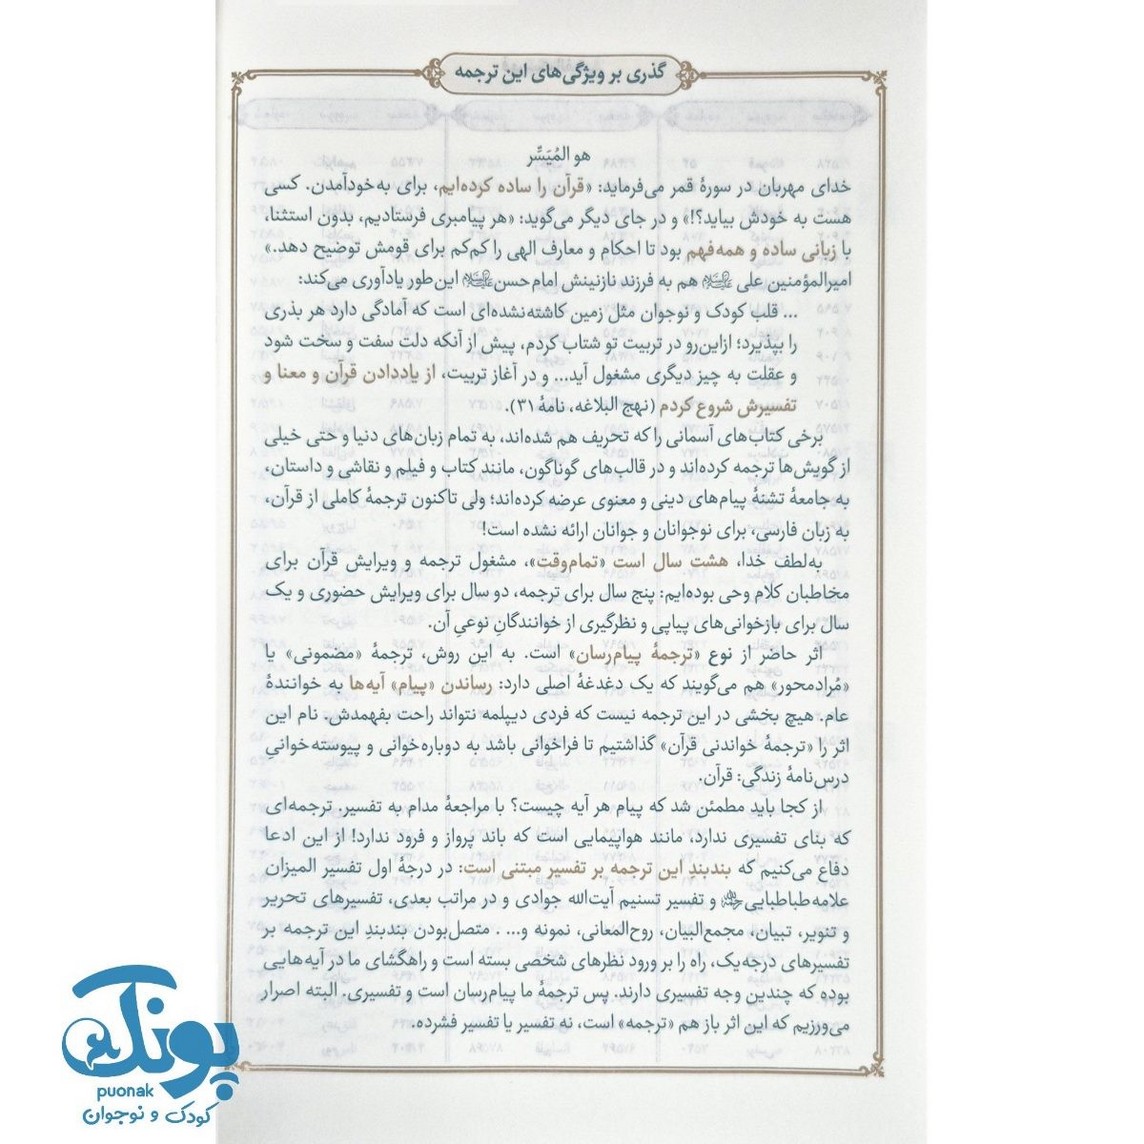 گذری بر ویژگی‌های این ترجمه
هو المُیَسِّر
خدای مهربان در سورهٔ قمر می‌فرماید: «قرآن را ساده کرده‌ایم، برای به‌خودآمدن. کسی
هست به خودش بیاید؟!» و در جای دیگر می‌گوید: «هر پیامبری فرستادیم، بدون استثنا،
با زبانی ساده و همه‌فهم بود تا احکام و معارف الهی را کم‌کم برای قومش توضیح دهد.»
امیرالمؤمنین علی هم به فرزند نازنینش امام حسن این‌طور یادآوری می‌کند:
... قلب کودک و نوجوان مثل زمین کاشته‌نشده‌ای است که آمادگی دارد هر بذری
را بپذیرد؛ ازاین‌رو در تربیت تو شتاب کردم، پیش از آنکه دلت سفت و سخت شود
و عقلت به چیز دیگری مشغول آید... و در آغاز تربیت، از یاددادن قرآن و معنا و
تفسیرش شروع کردم (نهج البلاغه، نامهٔ ۳۱).
برخی کتاب‌های آسمانی را که تحریف هم شده‌اند، به تمام زبان‌های دنیا و حتی خیلی
از گویش‌ها ترجمه کرده‌اند و در قالب‌های گوناگون، مانند کتاب و فیلم و نقاشی و داستان،
به جامعهٔ تشنهٔ پیام‌های دینی و معنوی عرضه کرده‌اند؛ ولی تاکنون ترجمهٔ کاملی از قرآن،
به زبان فارسی، برای نوجوانان و جوانان ارائه نشده است!
به‌لطف خدا، هشت سال است «تمام‌وقت»، مشغول ترجمه و ویرایش قرآن برای
مخاطبان کلام وحی بوده‌ایم: پنج سال برای ترجمه، دو سال برای ویرایش حضوری و یک
سال برای بازخوانی‌های پیاپی و نظرگیری از خوانندگانِ نوعیِ آن.
اثر حاضر از نوع «ترجمهٔ پیام‌رسان» است. به این روش، ترجمهٔ «مضمونی» یا
«مُرادمحور» هم می‌گویند که یک دغدغهٔ اصلی دارد: رساندن «پیام» آیه‌ها به خوانندهٔ
عام. هیچ بخشی در این ترجمه نیست که فردی دیپلمه نتواند راحت بفهمدش. نام این
اثر را «ترجمهٔ خواندنی قرآن» گذاشتیم تا فراخوانی باشد به دوباره‌خوانی و پیوسته‌خوانیِ
درس‌نامهٔ زندگی: قرآن.
از کجا باید مطمئن شد که پیام هر آیه چیست؟ با مراجعهٔ مدام به تفسیر. ترجمه‌ای
که بنای تفسیری ندارد، مانند هواپیمایی است که باند پرواز و فرود ندارد! از این ادعا
دفاع می‌کنیم که بندبندِ این ترجمه بر تفسیر مبتنی است: در درجهٔ اول تفسیر المیزان
علامه طباطبایی و تفسیر تسنیم آیت‌الله جوادی و در مراتب بعدی، تفسیرهای تحریر
و تنویر، تبیان، مجمع‌البیان، روح‌المعانی، نمونه و... . متصل‌بودن بندبندِ این ترجمه بر
تفسیرهای درجه‌یک، راه را بر ورود نظرهای شخصی بسته است و راهگشای ما در آیه‌هایی
بوده که چندین وجه تفسیری دارند. پس ترجمهٔ ما پیام‌رسان است و تفسیری. البته اصرار
می‌ورزیم که این اثر باز هم «ترجمه» است، نه تفسیر یا تفسیر فشرده.
پونک
puonak
کودک و نوجوان